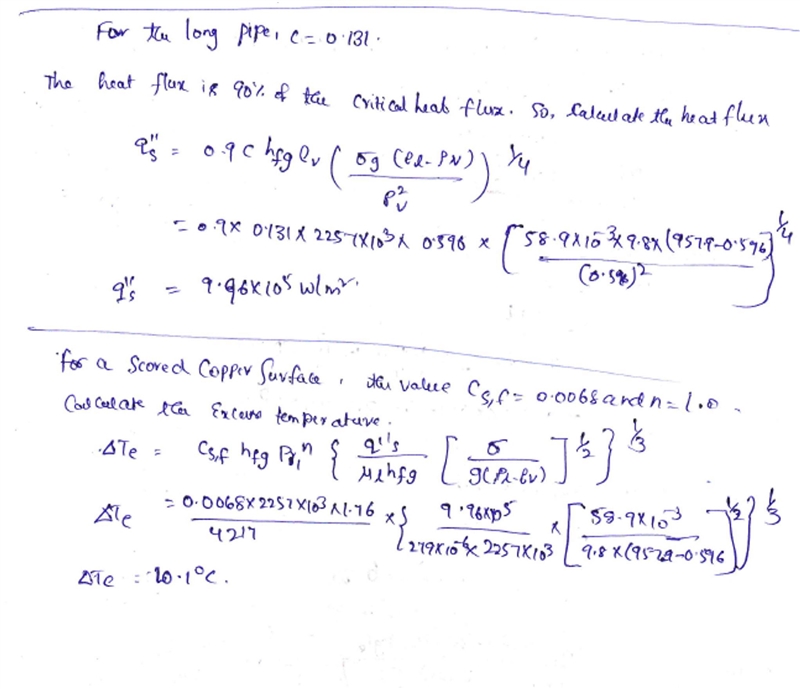 For the long pipe, C = 0.131.
The heat flux is 90% of the critical heat flux. So, Calculate the heat flux
q"s = 0.9 C hfg ρv ( σg (ρl - ρv) / ρv² )^1/4
= 0.9 x 0.131 x 2257 x 10³ x 0.596 x [ 58.9 x 10^-3 x 9.8 x (957.9 - 0.596) / (0.596)² ]^1/4
q"s = 9.96 x 10⁵ W/m².
For a Scored Copper Surface, the value Cs,f = 0.0068 and n = 1.0.
Calculate the Excess temperature.
ΔTe = Cs,f hfg Pr,l^n { q"s / μl hfg [ σ / g(ρl - ρv) ]^1/2 }^1/3
ΔTe = 0.0068 x 2257 x 10³ x 1.76 / 4217 x { 9.96 x 10^5 / 279 x 10^-6 x 2257 x 10³ x [ 58.9 x 10^-3 / 9.8 x (957.9 - 0.596) ]^1/2 }^1/3
ΔTe = 20.1°C.